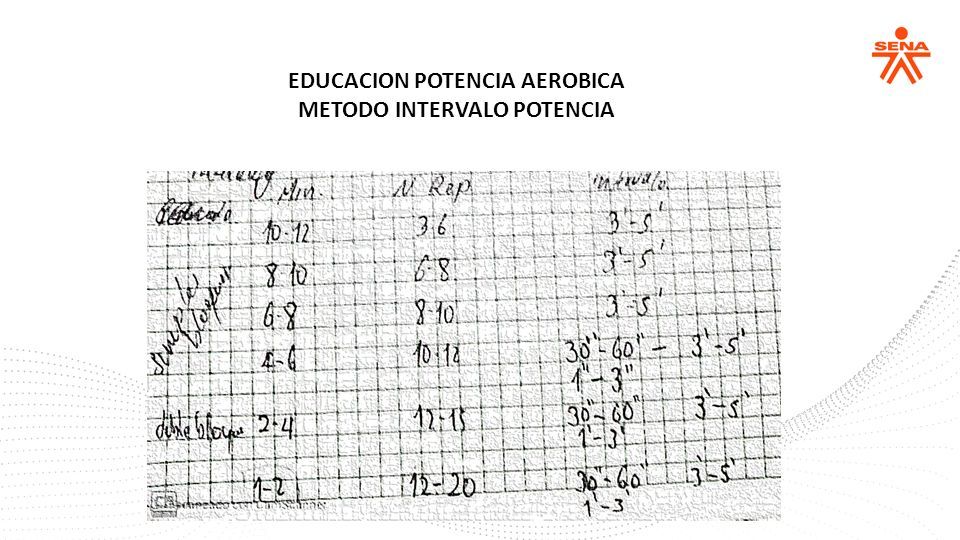 SENA
EDUCACION POTENCIA AEROBICA
METODO INTERVALO POTENCIA
Min N Rep Intervalo
10-12 3-6 3'-5'
8-10 6-8 3'-5'
6-8 8-10 3'-5'
simple bloque
4-6 10-12 30''-60'' - 3'-5'
1''-3''
doble bloque 2-4 12-15 30''-60'' 3'-5'
1'-3'
1-2 12-20 30''-60'' 3'-5'
1'-3'